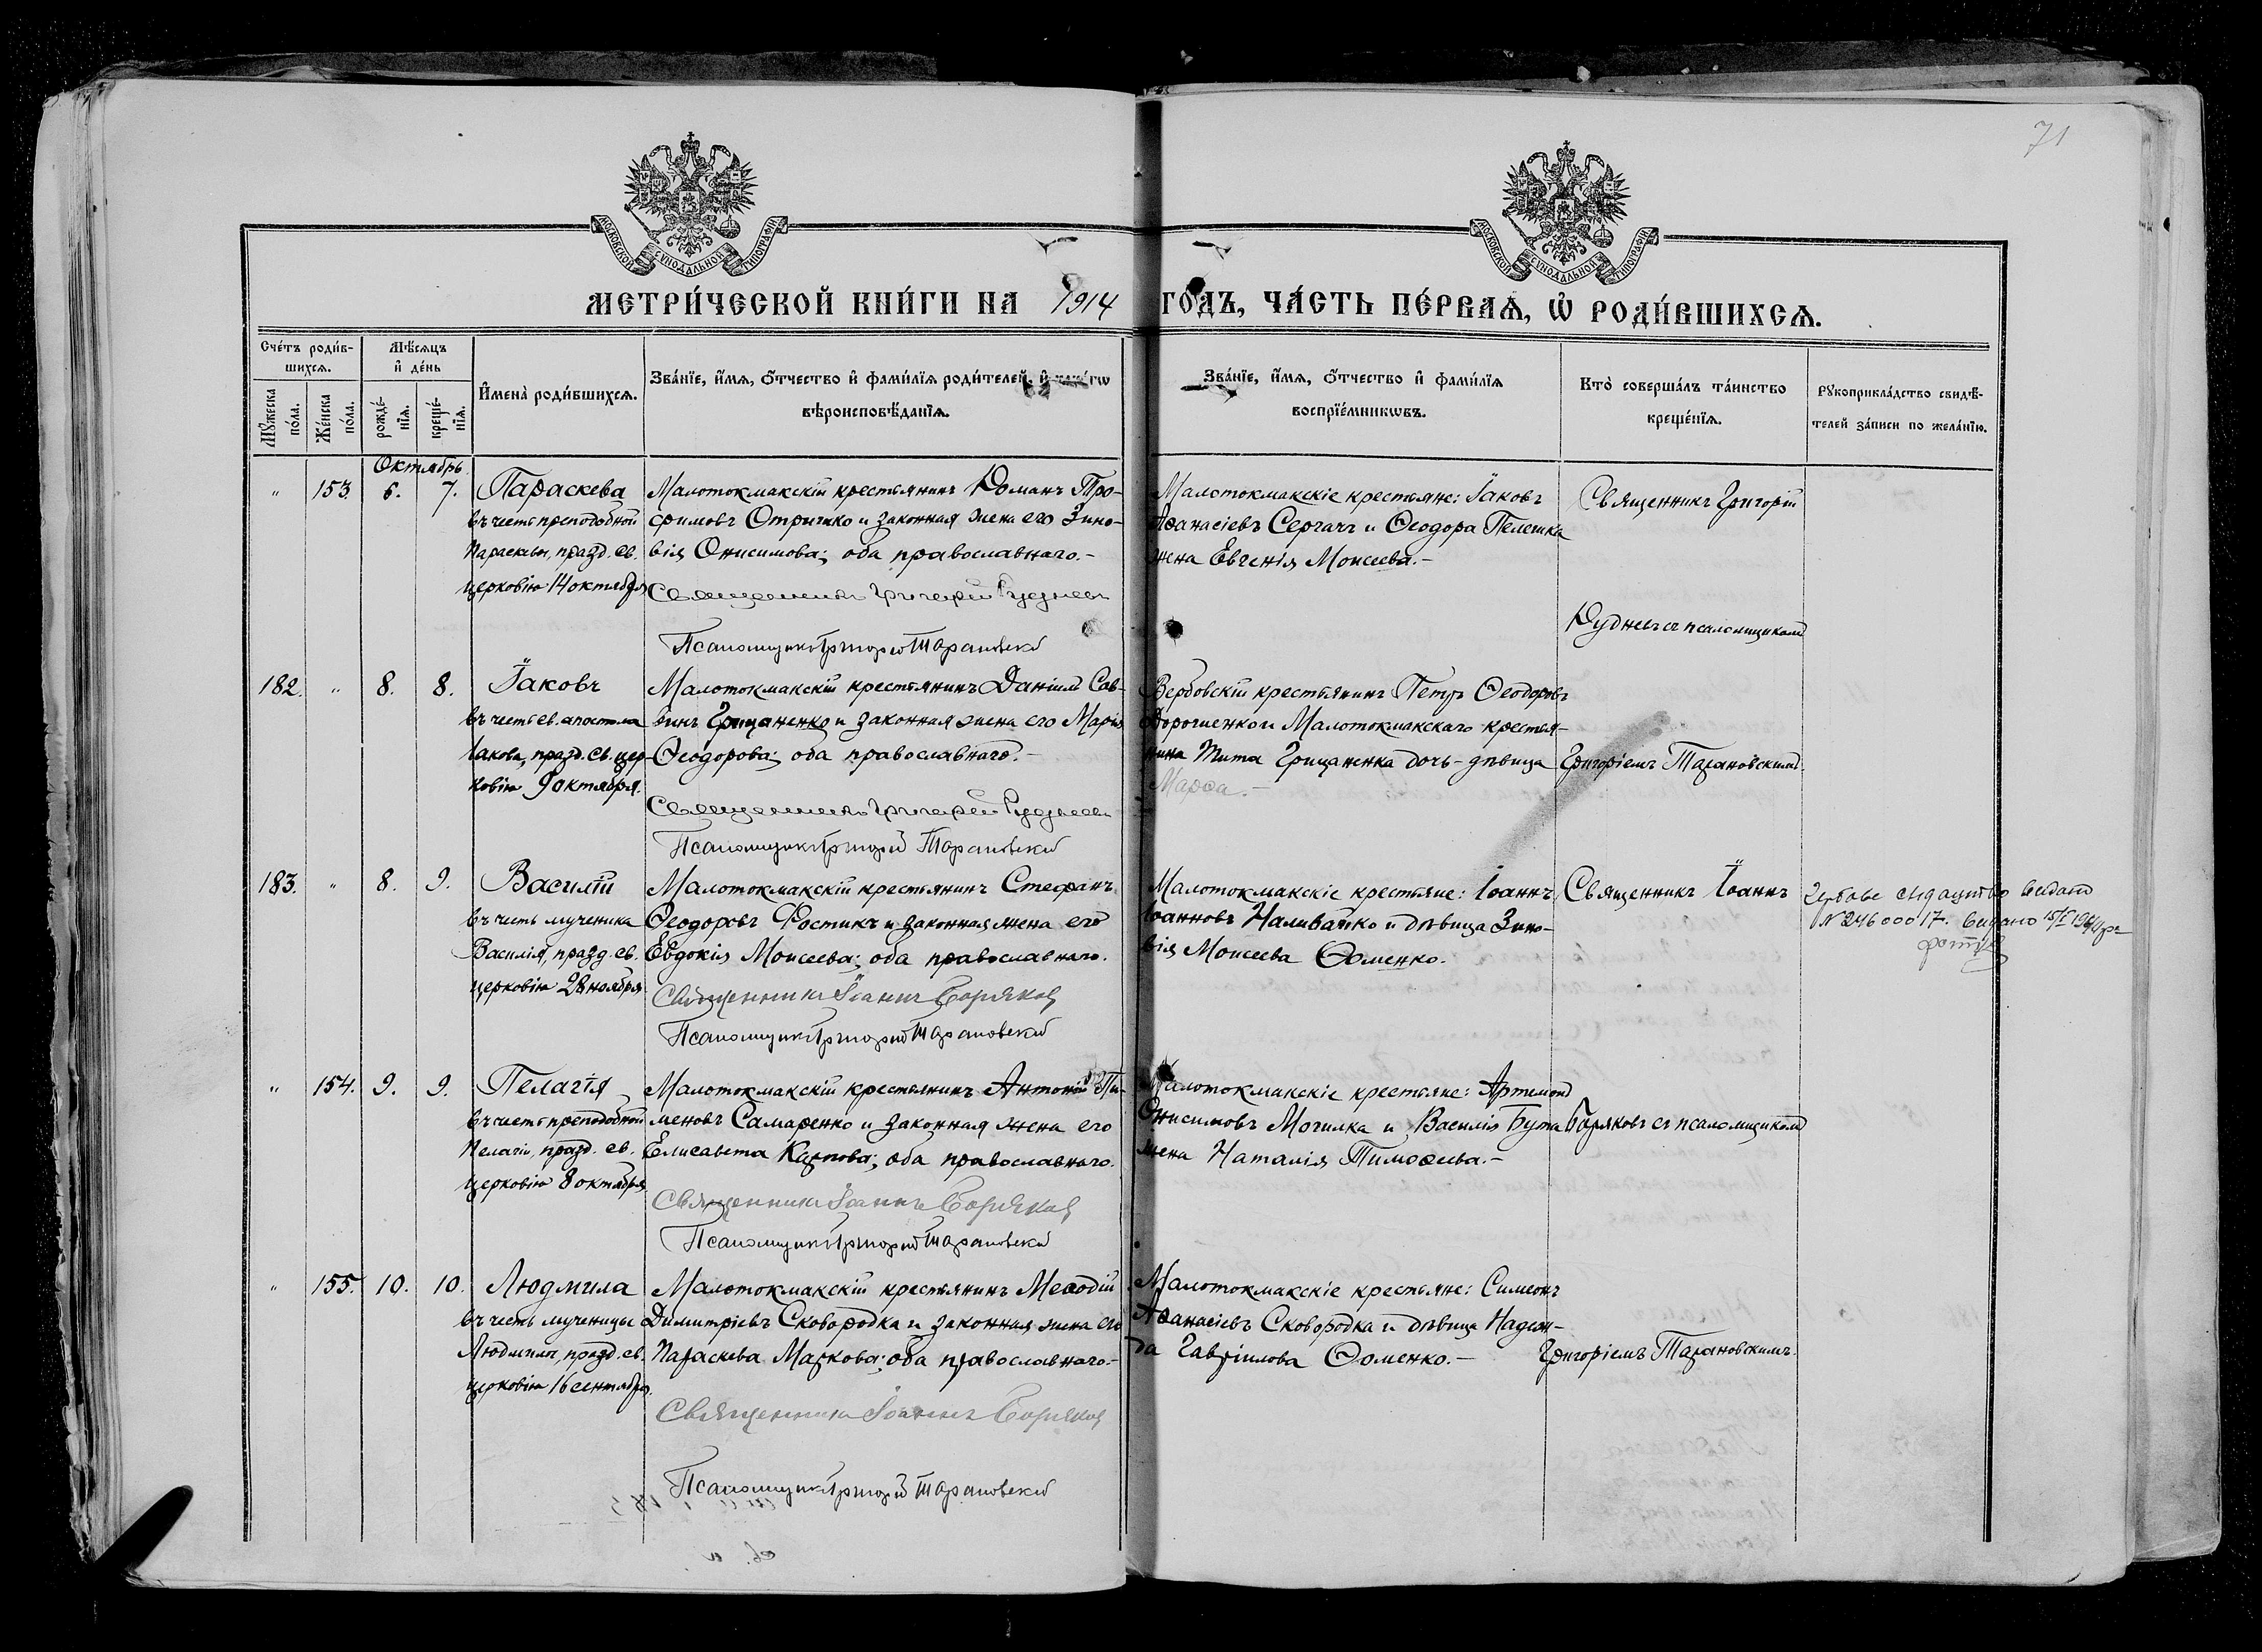 71
МОСКОВСКОЙ СУНОДАЛЬНОЙ ТИПОГРАФІИ
МОСКОВСКОЙ СУНОДАЛЬНОЙ ТИПОГРАФІИ
МЕТРИ́ЧЕСКОЙ КНИ́ГИ НА 1914 ГОДЪ, ЧА́СТЬ ПЕ́РВАѦ, Ѽ РОДИ́ВШИХСѦ.
Сче́тъ роди́в-
шихсѧ.
Мѣ́сѧцъ
и҆ де́нь
Мꙋ́жеска
по́ла.
Же́нска
по́ла.
рожде́-
нїѧ.
креще́-
нїѧ.
И҆мена̀ роди́вшихсѧ.
Зва́нїе, и҆́мѧ, ѻ҆́тчество и҆ фами́лїѧ роди́телей, и҆
вѣроисповѣ́данїѧ.
Зва́нїе, и҆́мѧ, ѻ҆́тчество и҆ фами́лїѧ
воспрїе́мникѡвъ.
Кто̀ соверша́лъ та́инство
креще́нїѧ.
Рꙋкоприкла́дство свидѣ́-
телей за́писи по жела́нїю.
Октябрь
" 153. 6. 7. Параскева
въ честь преподобной
Параскевы, празд. св.
церковію 14 октября
Малотокмакскій крестьянинъ Романъ Тро-
фимовъ Отришко и законная жена его Зино-
вія Онисимова; оба православнаго.-
Священникъ Григорій Рудневъ
Псаломщикъ Григорій Тарановскій
Малотокмакскіе крестьяне: Іаковъ
Аѳанасіевъ Сергачъ и Ѳеодора Пелешка
жена Евгенія Моисеева.-
Священникъ Григорій
Рудневъ съ псаломщикомъ
Григоріемъ Тарановскимъ.
182. " 8. 8. Іаковъ
въ честь св. апостола
Іакова, празд. св. цер-
ковію 9 октября.
Малотокмакскій крестьянинъ Даніилъ Сав-
винъ Грищаненко и законная жена его Марія
Ѳеодорова; оба православнаго.-
Священникъ Григорій Рудневъ
Псаломщикъ Григорій Тарановскій
Вербовскій крестьянинъ Петръ Ѳеодоровъ
Дорошенко и Малотокмакскаго крестья-
нина Тита Грищаненка дочь-дѣвица
Марѳа.-
183. " 8. 9. Василій
въ честь мученика
Василія, празд. св.
церковію 28 ноября
Малотокмакскій крестьянинъ Стефанъ
Ѳеодоровъ Фостикъ и законная жена его
Евдокія Моисеева; оба православнаго.
Священникъ Іоаннъ Боряковъ
Псаломщикъ Григорій Тарановскій
Малотокмакскіе крестьяне: Іоаннъ
Іоанновъ Наливайко и дѣвица Зино-
вія Моисеева Ѳоменко.
Священникъ Іоаннъ
Боряковъ съ псаломщикомъ
Григоріемъ Тарановскимъ.
№ 24600017.
" 154. 9. 9. Пелагія
въ честь преподобной
Пелагіи, празд. св.
церковію 8 октября
Малотокмакскій крестьянинъ Антоній Пи-
меновъ Самаренко и законная жена его
Елисавета Карпова; оба православнаго.
Священникъ Іоаннъ Боряковъ
Псаломщикъ Григорій Тарановскій
Малотокмакскіе крестьяне: Артемонъ
Онисимовъ Могилка и Василія Бута
жена Наталія Тимоѳеева.-
" 155. 10. 10. Людмила
въ честь мученицы
Людмилы, празд. св.
церковію 16 сентября.
Малотокмакскій крестьянинъ Меѳодій
Димитріевъ Сковородка и законная жена его
Параскева Маркова; оба православнаго.-
Священникъ Іоаннъ Боряковъ
Псаломщикъ Григорій Тарановскій
Малотокмакскіе крестьяне: Симеонъ
Аѳанасіевъ Сковородка и дѣвица Надеж-
да Гавріилова Ѳоменко.-